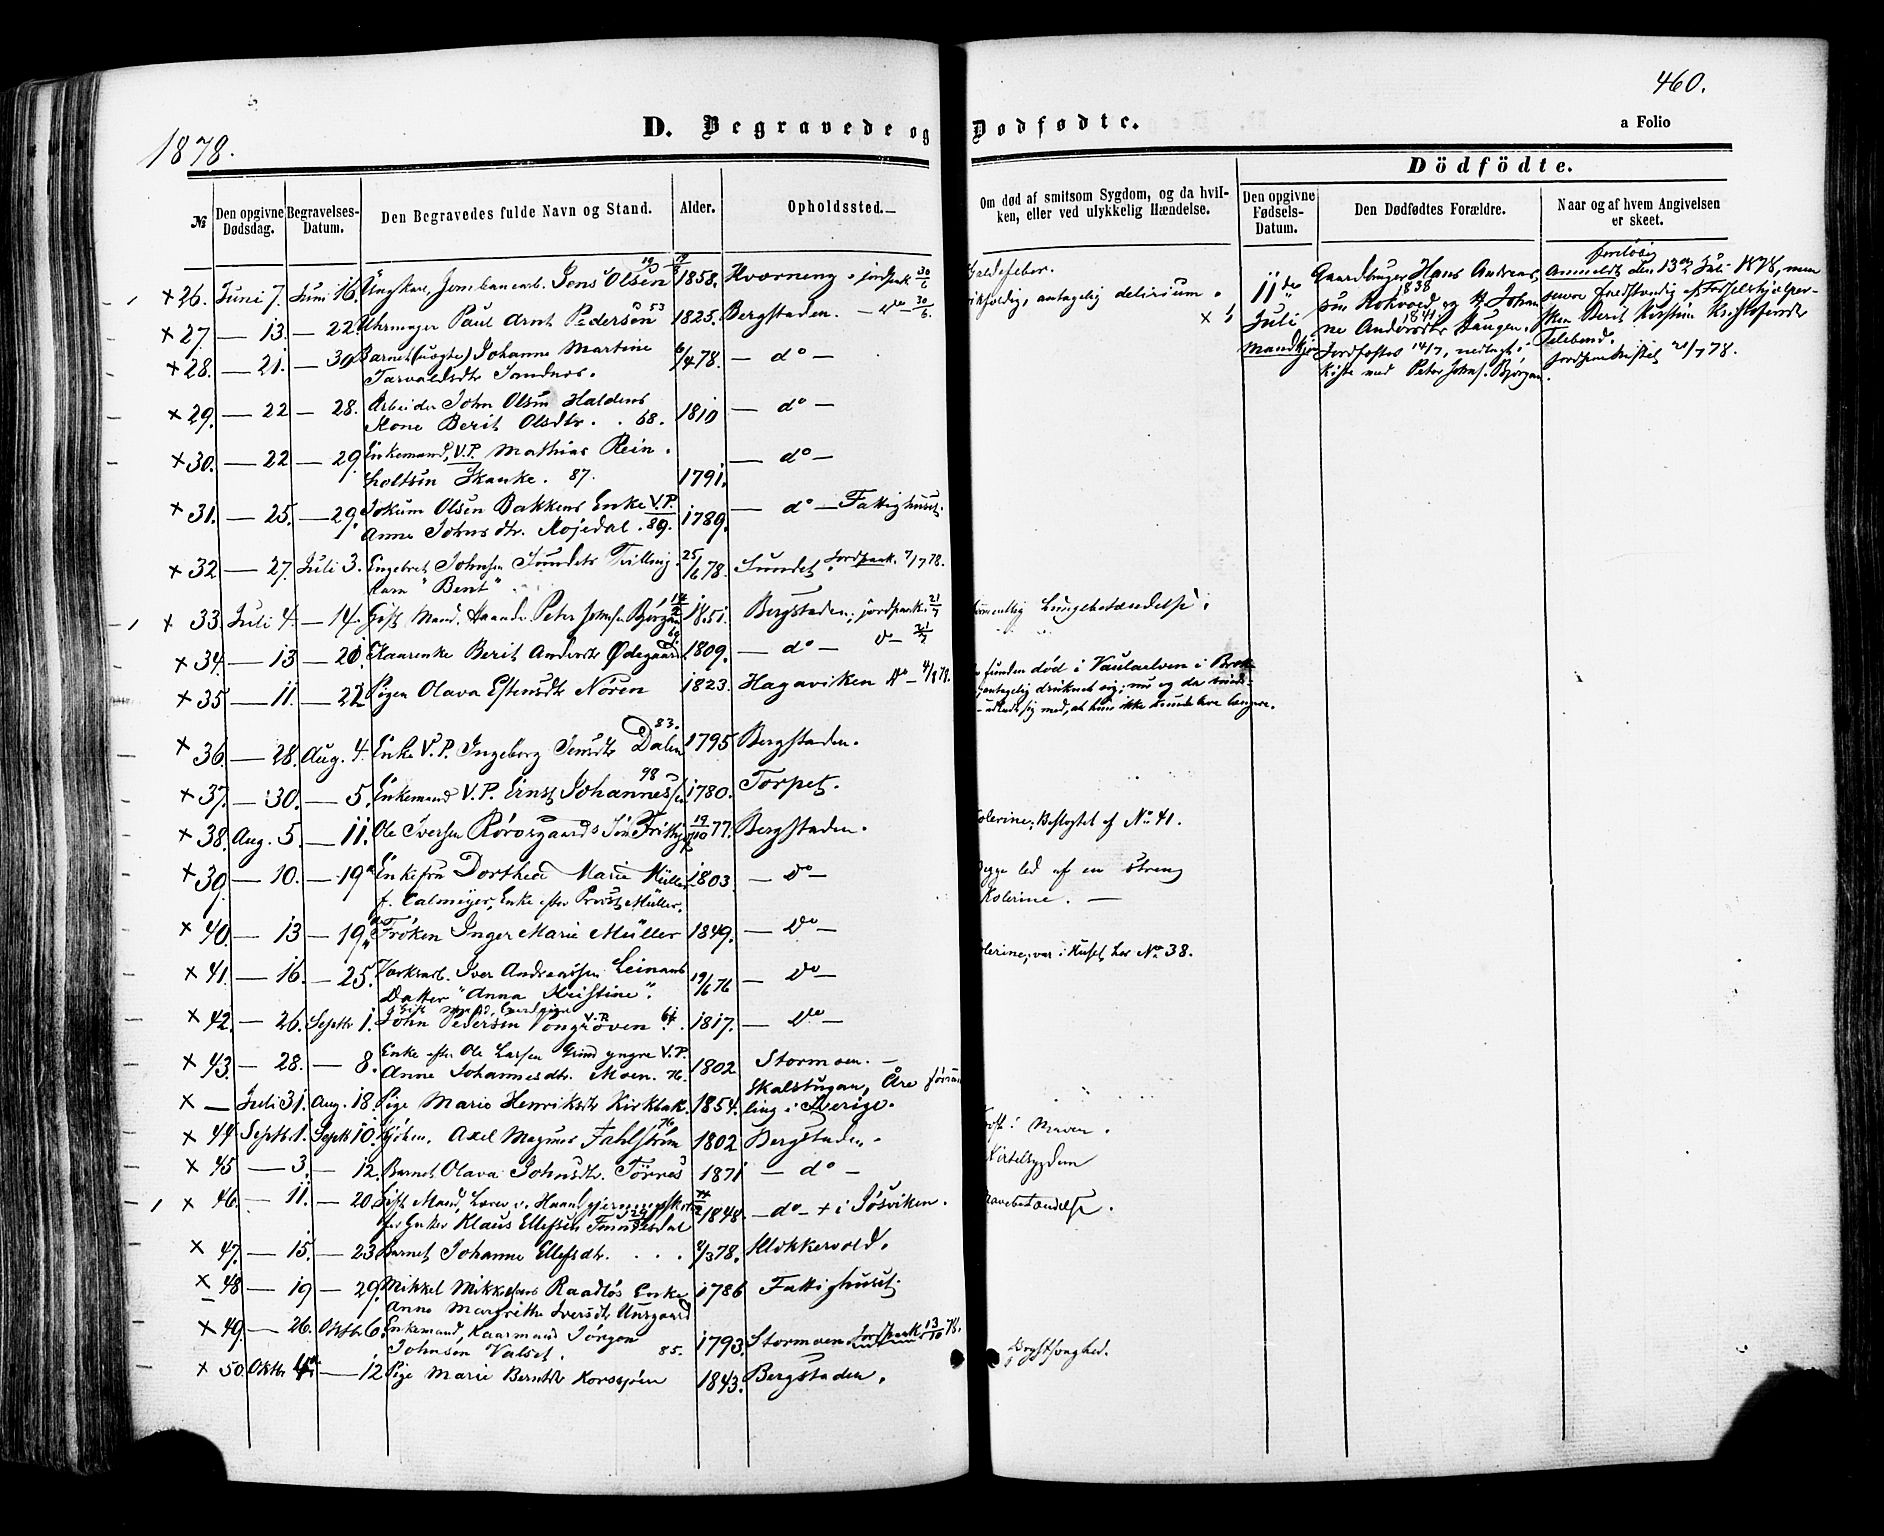 460.
1878.
D. Begravede og Dødfødte.
a Folio
Dödfödte.
№
Den opgivne Dødsdag.
Begravelses-Datum.
Den Begravedes fulde Navn og Stand.
Alder.
Opholdssted.
Om død af smitsom Sygdom, og da hvilken, eller ved ulykkelig Hændelse.
Den opgivne Fødsels-Datum.
Den Dødfødtes Forældre.
Naar og af hvem Angivelsen er skeet.
× 26. Juni 7. Juni 16. Ungkarl, Jernbanearb. Jens Olsen 1858. Kværneng. jordpaak 30/6
× 27 — 13. — 22 Uhrmager Paul Arnt Pedersen 53 1825. Bergstaden. — do — 30/6.
× 28. — 21. — 30 Barnet (uægte) Johanne Martine
Tarvaldsdtr 6/4 78. — do —
× 29. — 22 — 28. Arbeider John Olsen Haldens
Kone Berit Olsdtr. 68. 1810 — do —
× 30. — 22 — 29. Enkemand, V.P. Mathias Rein
holtsen Skanke. 87. 1791. — do —
× 31. — 25. — 29. Jokum Olsen Bakkens Enke V.P.
Anne Johnsdtr. 89. 1789. — do — Fattighuset.
× 32 — 27. Juli 3. Engebret Johnsen Sundets Tvilling
barn "Bent" 25/6 78. Sundet. Jordpaak. 7/7 78.
× 33. Juli 4. — 14. Gift Mand. Peter Johnsen 1851. Bergstaden; jordpaak. 21/7 Lungebetændelse.
× 34. — 13 — 21. Enke Berit Andersdtr Ødegaard 69 1809. — do — do — 21/7
× 35 — 11. — 22 Pigen Olava Estensdtr Noren 1823. Hagaviken do — 4/8 78. funden død i Vaulaelven i
antagelig druknet sig; nu og da
sig med, at hun ikke kunde leve længere.
× 36. — 28. Aug. 4. Enke V.P. Ingeborg Jensdtr Dalen 83. 1795 Bergstaden.
× 37. — 30. — 5. Enkemand V.P. Ernst Johannessen 98 1780. Torpet.
× 38. Aug. 5. — 11. Ole Iversen Rørosgaards Søn 19/10 77. Bergstaden. Kolerine; Beslægtet af No 41.
× 39. — 10. — 19 Enkefru Dorthea Marie Müller
f. Calmeyer, Enke efter Provst Müller. 1803. — do — Begge led af en streng
Kolerine. —
× 40. — 13 — 19 Frøken Inger Marie Müller 1849. — do —
× 41. — 16. — 25. Iver Andreassen
Datter "Anna Kristine". 19/6 76 — do — Kolerine; var i Huset hos No 38.
× 42. — 26. Septbr 1. John Pedersen V.P. 61. 1817. — do —
× 43. — 28. — 8. Enke efter Ole Larsen Grind yngre V.P.
Anne Johannesdtr. Moen. 76. 1802 Stormoen. —
× — Juli 31. Aug. 18. Pige Marie Henriksdtr Kirkbak. 1854. Skalstugan, Åre försam
ling i Sverige.
× 44 Septbr 1. Septbr 10. Axel Magnus Fahlstrøm 76 1802 Bergstaden. i Maven.
× 45 — 3. — 12. Barnet Olava Johnsdtr. Törres 1871 — do — Kirtelsygdom
× 46. — 11. — 20. Gift Mand, Lærer v. Haandgjerningsskole
for Enker Klaus Ellefsen 1848. — do — + i Jøsviken. Mavebetændelse.
× 47. — 15. — 23. Barnet Johanne Ellefsdtr. . . . 4/3 78. Klokkervold.
× 48 — 19 — 29. Mikkel Mikkelsens Raadløs Enke
Anne Margrethe Iversdtr Aursgaard 1786 Fattighuset.
× 49. — 26. Oktbr 6. Enkemand, Kaarmand Jørgen
Johnsen Valset. 85. 1793. Stormoen. Jordpaak. 13/10 78.
× 50. Oktbr — 12 Pige Marie Berntdtr 1843. Bergstaden. Brystsyghed.
antagelig delirium.
11te
Juli
Mandkjøn
Gaardbruger Hans Andreas
1838
ne Andersdtr Haugen. 1841
Jordfæstes 14/7, nedlagt i
Kiste med Peter Johns.
foreløbig
Anmeldt den 13de Juli 1878, men
senere fuldstændig af Fødselshjælper
sken Berit Kirstine
Jordpaakastet 21/7 78.